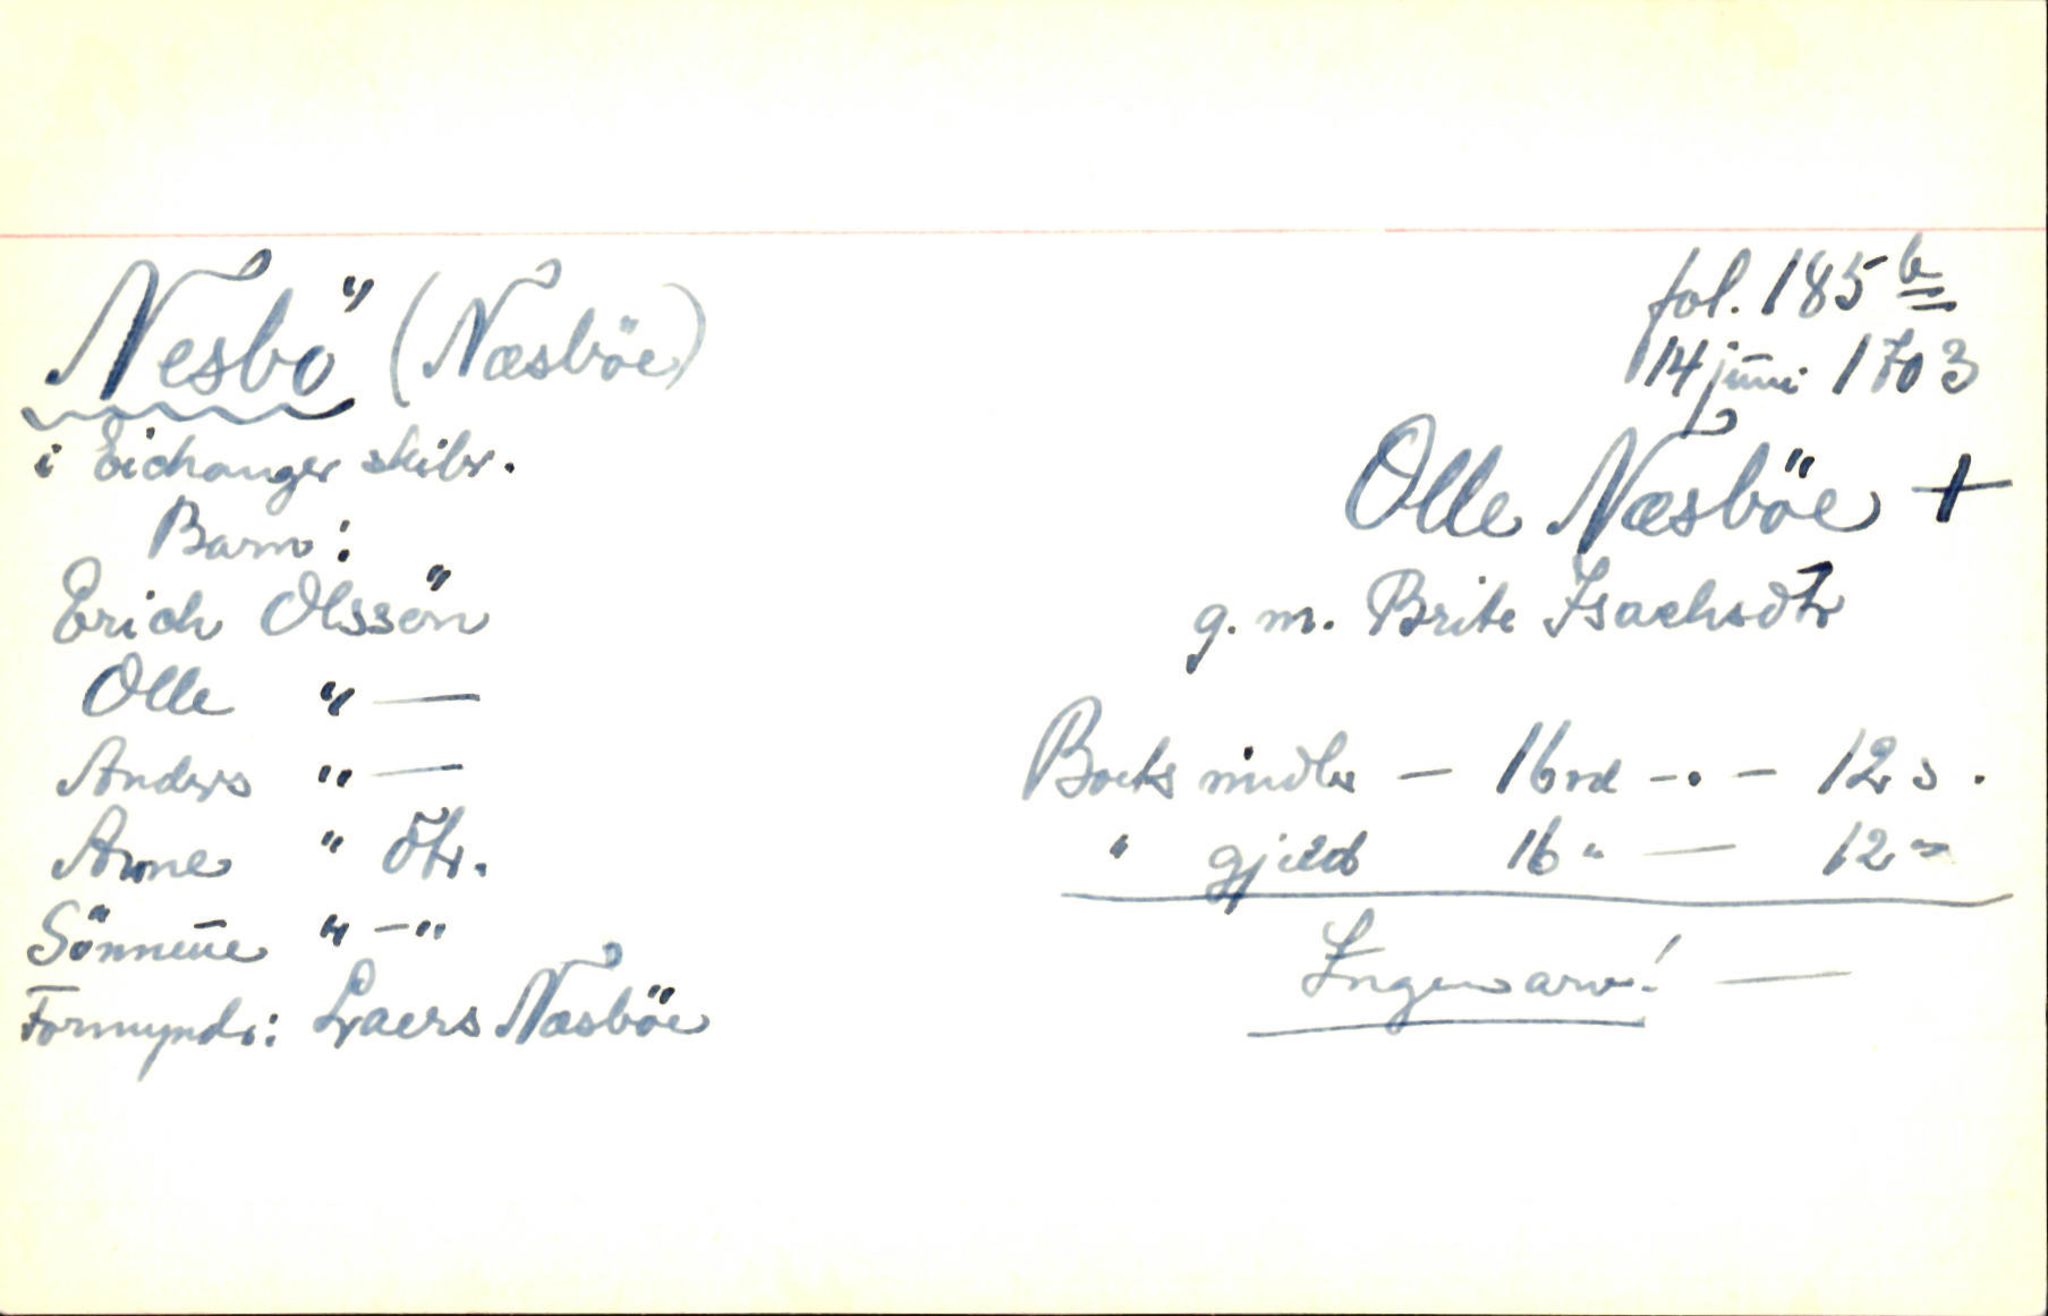 Nesbö (Næsböe)
i Eichanger skibr.
Barn:
Erich Olssön
Olle " —
Anders " —
Anne " dtr.
Sönneue " — "
Formynds: Laers Næsböe
fol. 185 b
14 juni 1703
Olle Næsböe +
g. m. Brite Isachsdtr
Boets midler — 16 rd - . - 12 s.
" gjeld 16 " — 12 "
Ingen arv! —